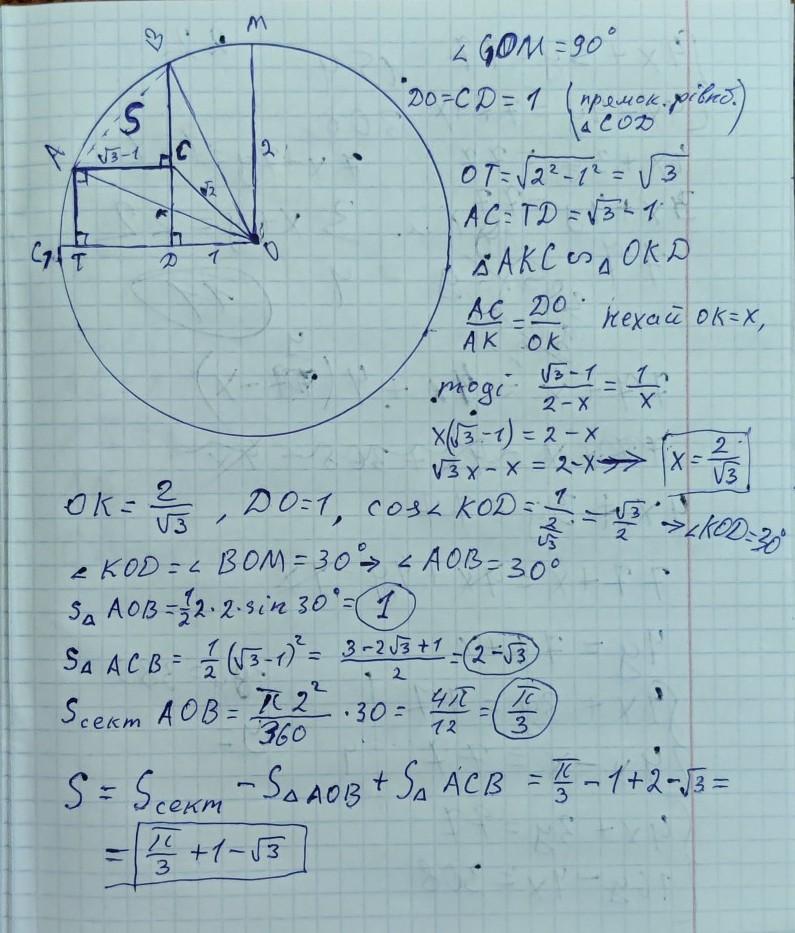 M
B
S
A
√3-1
C
√2
2
K
G
T
D
1
O
∠GOM = 90°
DO=CD=1 (прямок. рівнб. ΔCOD)
OT=√2²-1² = √3
AC=TD=√3-1
ΔAKC ∽ ΔOKD
AC/AK = DO/OK нехай OK=x,
тоді √3-1/2-x = 1/x
x(√3-1) = 2-x
√3x-x = 2-x → x = 2/√3
OK = 2/√3, DO=1, cos∠KOD = 1/(2/√3) = √3/2 → ∠KOD=30°
∠KOD=∠BOM=30° → ∠AOB=30°
SΔ AOB = 1/2 2·2·sin 30° = 1
SΔ ACB = 1/2 (√3-1)² = 3-2√3+1/2 = 2-√3
Sсект AOB = π2²/360 · 30 = 4π/12 = π/3
S = Sсект - SΔAOB + SΔ ACB = π/3 - 1 + 2 - √3 =
= π/3 + 1 - √3